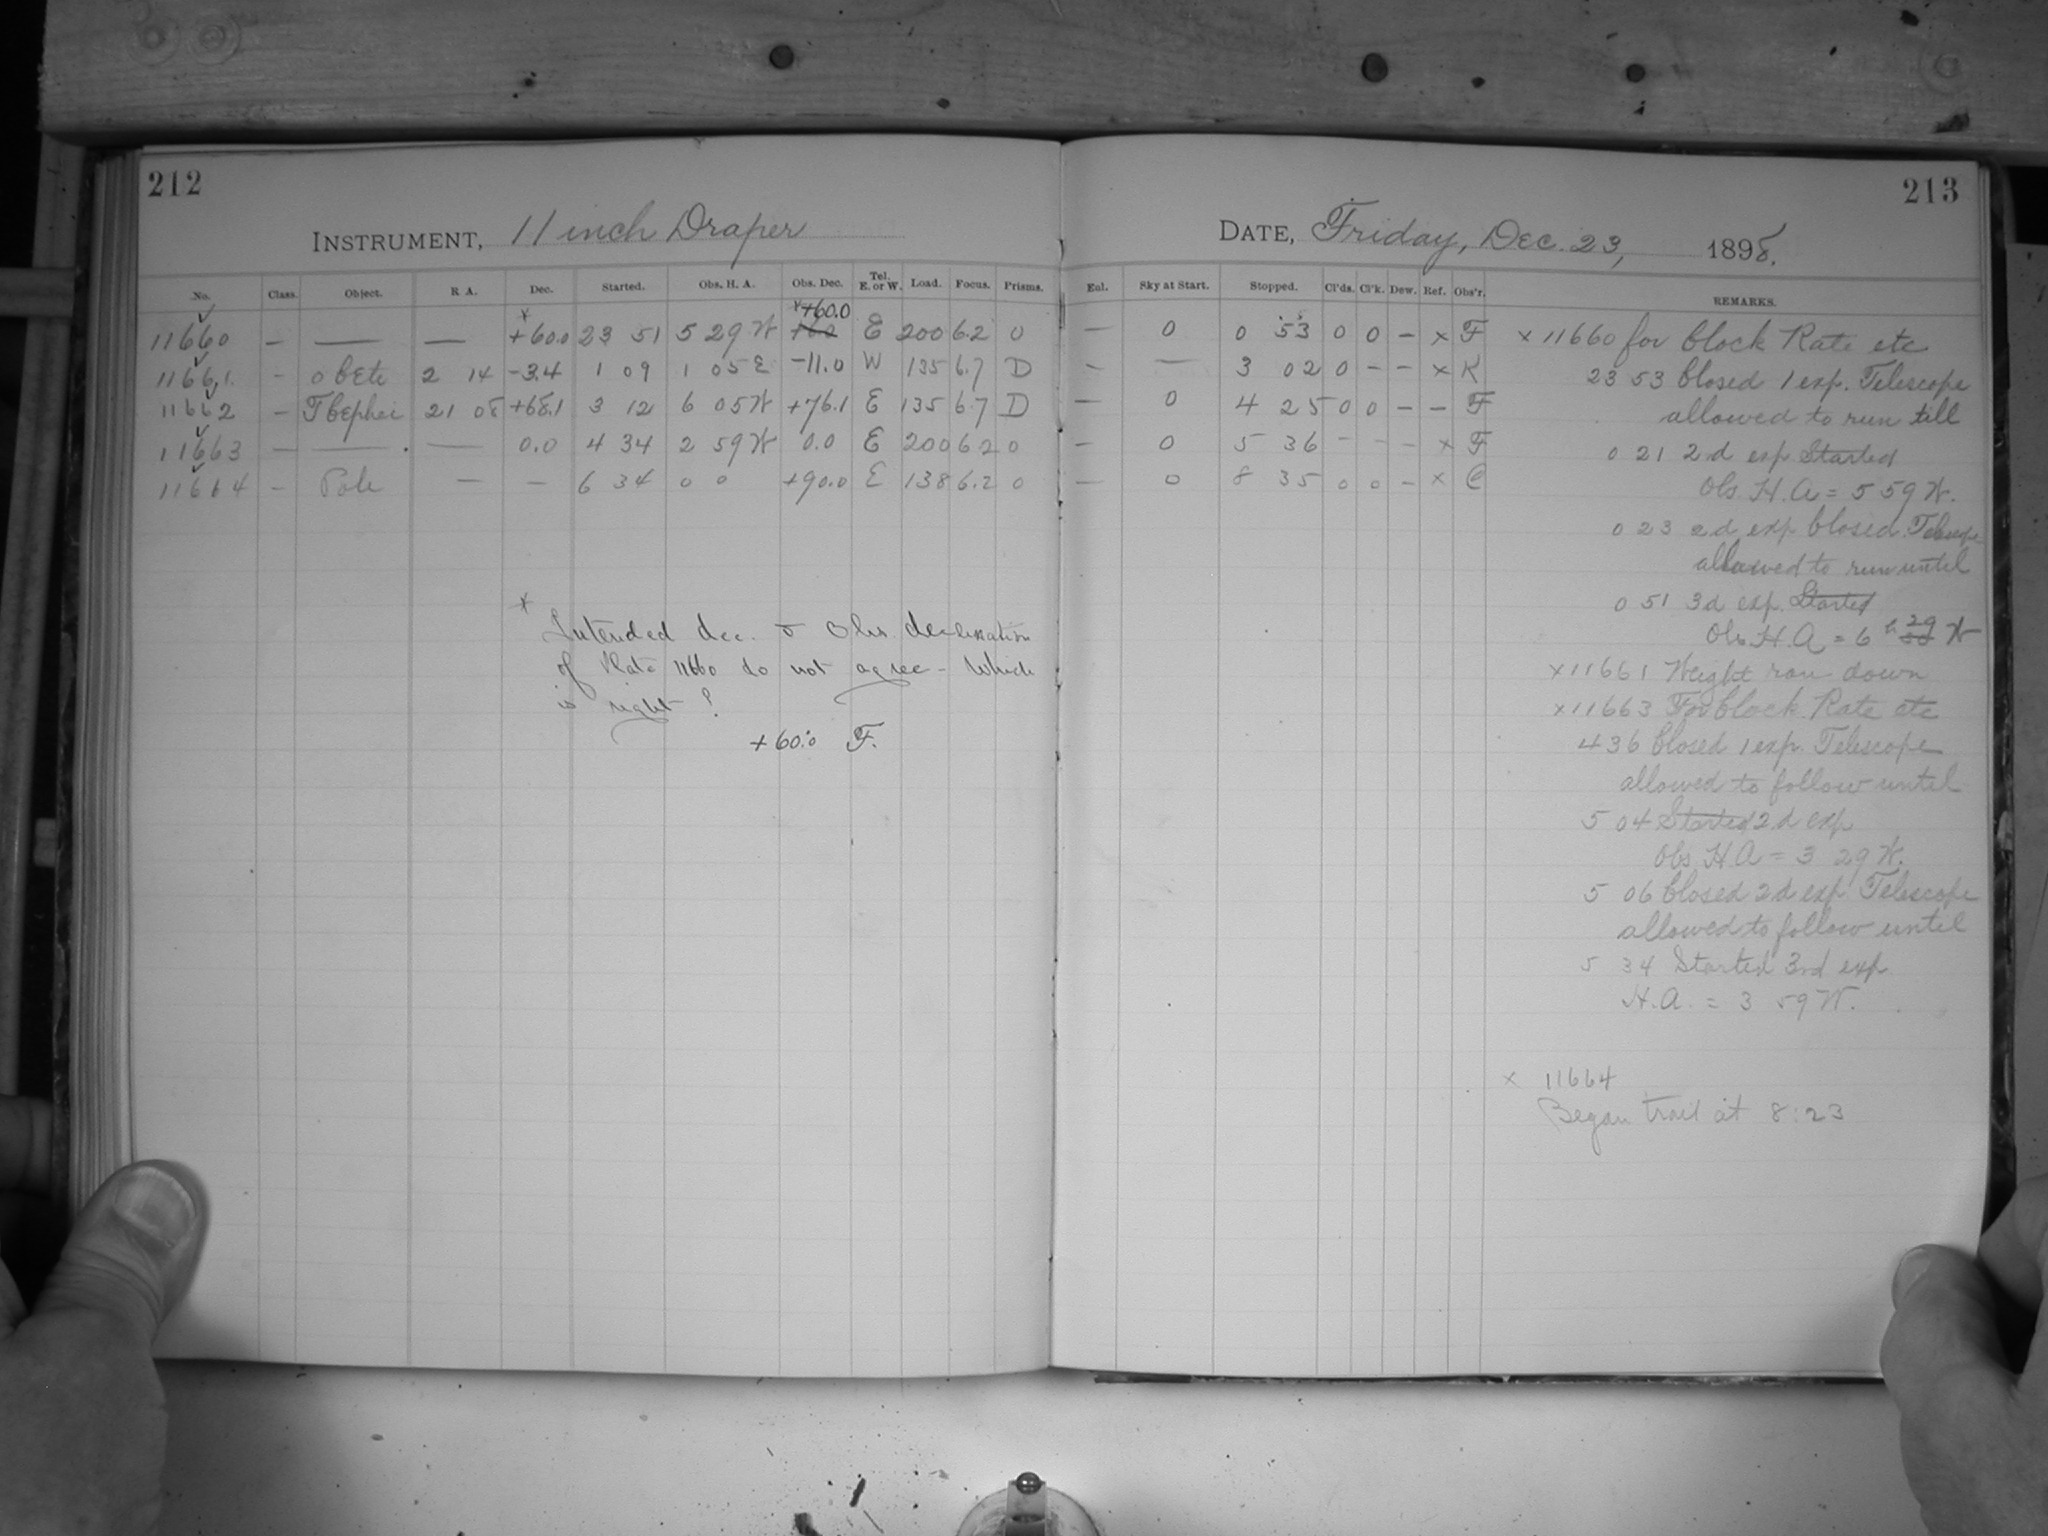 212
INSTRUMENT, 11 inch Draper
No. Class. Object. R A. Dec. Started. Obs. H. A. Obs. Dec. Tel. E. or W. Load. Focus. Prisms.
11660 — — — × +60.0 23 51 5 29 W ×+60.0 E 200 6.2 0
11661. - o Cete 2 14 -3.4 1 09 1 05 E -11.0 W 135 6.7 D
11662 - T Cephei 21 08 +68.1 3 12 6 05 W +76.1 E 135 6.7 D
11663 — — — 0.0 4 34 2 59 W 0.0 E 200 6.2 0
11664 - Pole — — 6 34 0 0 +90.0 E 138 6.2 0
× Intended dec. & Obs. declination
of Plate 11660 do not agree - Which
is right?
+60.0 F.
213
DATE, Friday, Dec. 23, 1898.
Eul. Sky at Start. Stopped. Cl'ds. Cl'k. Dew. Ref. Obs'r. REMARKS.
— 0 0 53 0 0 - × F
- — 3 02 0 - - × K
— 0 4 25 0 0 - - F
- 0 5 36 - - - × F
— 0 8 35 0 0 - × C
× 11660 for Clock Rate etc
23 53 Closed 1 exp. Telescope
allowed to run till
0 21 2d exp Started
Obs. H.A = 5 59 W.
0 23 2d exp Closed. Telescope
allowed to run until
0 51 3d exp. Started
Obs. H.A = 6 h 29 W
×11661 Weight ran down
×11663 For Clock Rate etc
4 36 Closed 1 exp. Telescope
allowed to follow until
5 04 Started 2d exp
Obs. H.A = 3 29 W.
5 06 Closed 2d exp Telescope
allowed to follow until
5 34 Started 3rd exp
H.A. = 3 59 W.
× 11664
Began trail at 8:23